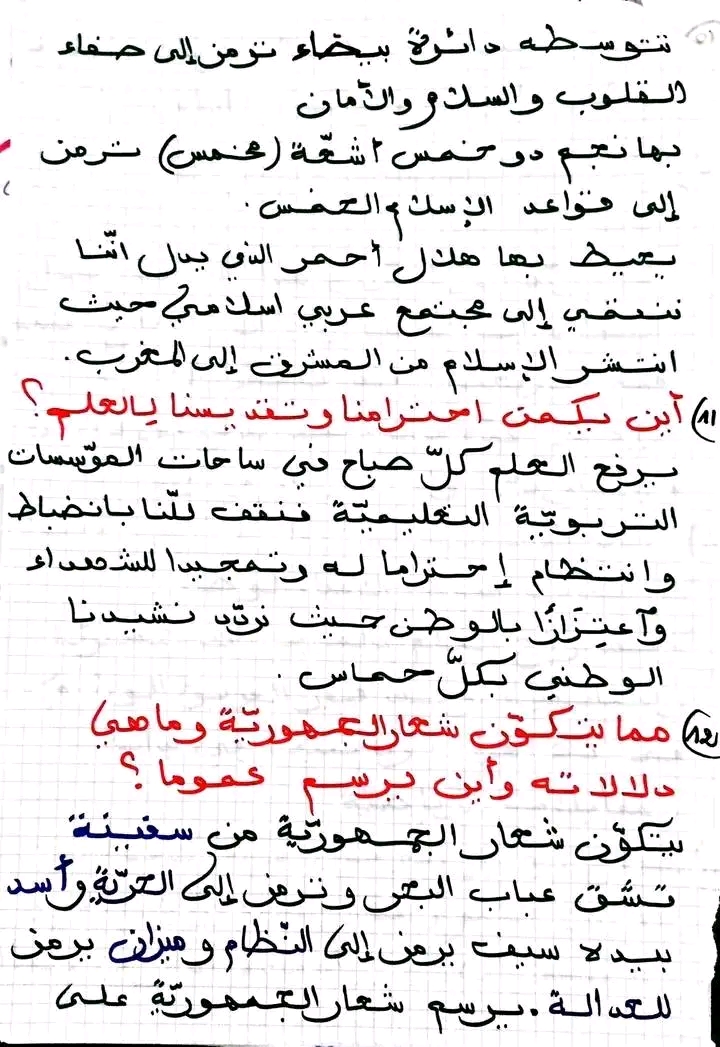 تتوسطه دائرة بيضاء ترمز إلى صفاء
القلوب والسلام والأمان
بها نجم دو خمس أشعّة (مخمس) ترمز
إلى قواعد الإسلام الخمس.
يحيط بها هلال أحمر الذي يدل اتّنا
ننتمي إلى مجتمع عربي اسلامي حيث
انتشر الإسلام من المشرق إلى المغرب.
11) أين يكمن احترامنا وتقديسنا بالعلم؟
يرفع العلم كلّ صباح في ساحات المؤسسات
التربويّة التعليميّة فنقف كلّنا بانضباط
وانتظام إحتراما له وتمجيدا للشهداء
وآعتِزَازًا بالوطن حيث نردّد نشيدنا
الوطني بكلّ حماس.
12) مما يتكوّن شعار الجمهوريّة وماهي
دلالاته وأين يرسم عموما؟
يتكوّن شعار الجمهوريّة من سفينة
تشق عباب البحر وترمز إلى الحرّيّة وأسد
بيده سيف يرمز إلى النّظام وميزان يرمز
للعدالة. يرسم شعار الجمهوريّة على